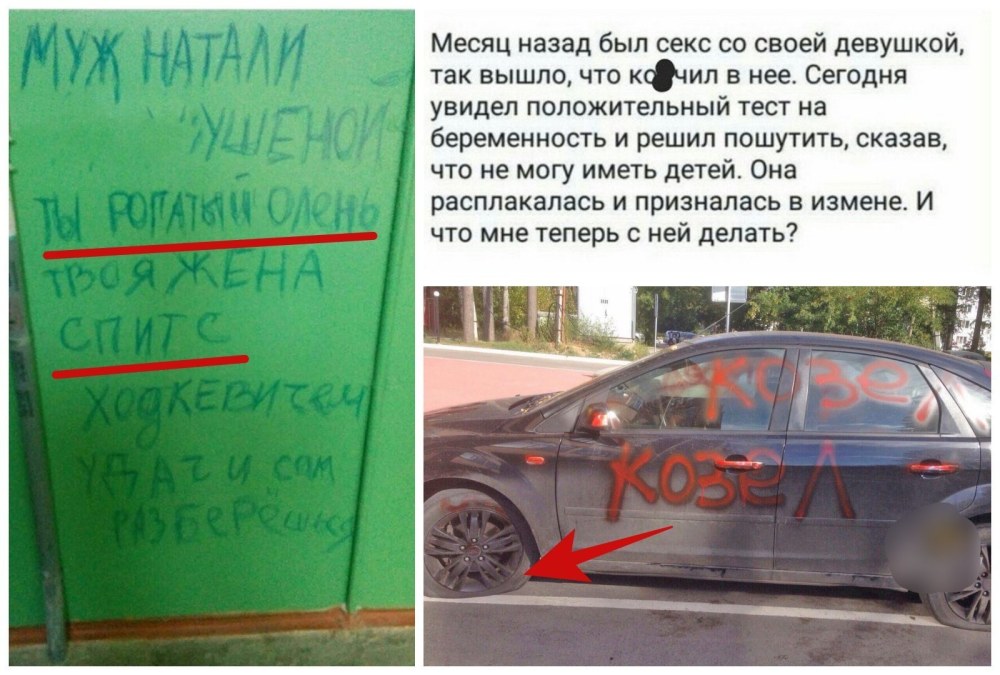 МУЖ НАТАЛИ
ТЫ РОГАТЫЙ ОЛЕНЬ
ТВОЯ ЖЕНА
СПИТ С
ХОДКЕВИЧем
УДАЧИ сам
РАЗБЕРЁШЬСЯ
Месяц назад был секс со своей девушкой,
так вышло, что в нее. Сегодня
увидел положительный тест на
беременность и решил пошутить, сказав,
что не могу иметь детей. Она
расплакалась и призналась в измене. И
что мне теперь с ней делать?
козел
козел